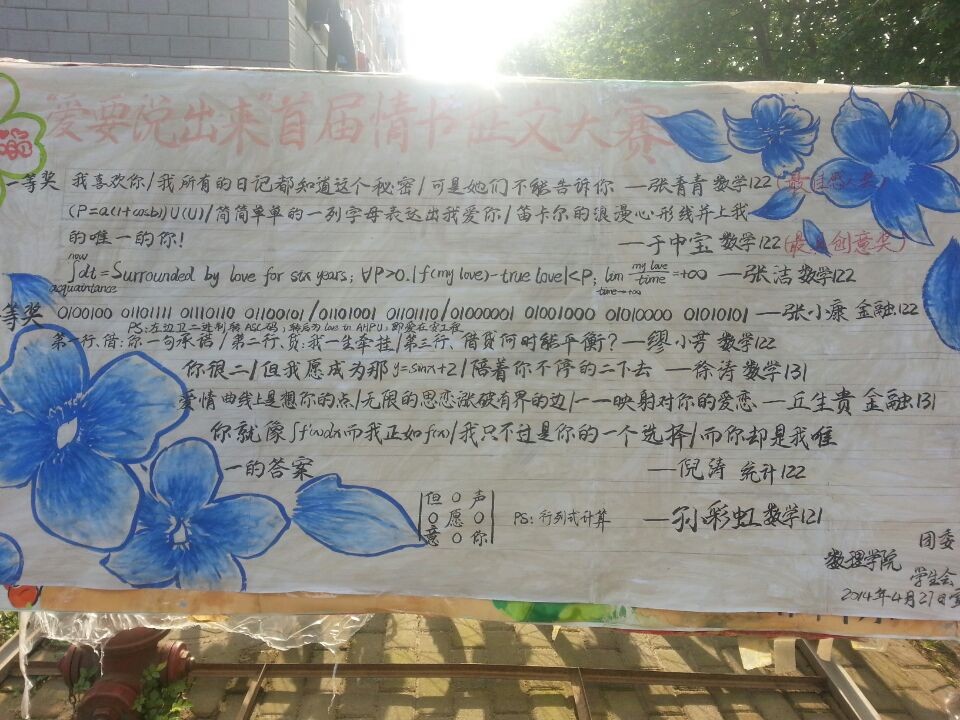 "爱要说出来"首届情书征文大赛
一等奖 我喜欢你/我所有的日记都知道这个秘密/可是她们不能告诉你 —张青青 数学122 (最佳 奖)
(P=a(1+cosb))U(U)/简简单单的一列字母表达出我爱你/笛卡尔的浪漫心形线并上我
的唯一的你! —于中宝 数学122 (最具创意奖)
∫now acquaintance dt = Surrounded by love for six years; ∀P>0.|f(my love)-true love|<P; lim time→+∞ my love/time=+∞ —张洁 数学122
等奖 0100100 01101111 01110110 01100101/01101001 01101110/01000001 01001000 01010000 01010101 —张小康 金融122
PS:左边卫二进制转ASC码,转后为love in AHPU,即爱在安工程
第一行、借:你一句承诺/第二行、贷:我一生牵挂/第三行、借贷何时能平衡?—缪小芳 数学122
你很二/但我愿成为那y=sinx+2/陪着你不停的二下去 —徐涛 数学131
爱情曲线上是想你的点/无限的思恋涨破有界的边/一一映射对你的爱恋 —丘生贵 金融131
你就像∫f'(x)dx而我正如f(x)/我只不过是你的一个选择/而你却是我唯
一的答案 —倪涛 统计122
|但 0 声|
|0 愿 0| PS:行列式计算 —孙彩虹 数学121
|意 0 你|
团委
数理学院
学生会
2014年4月27日宣